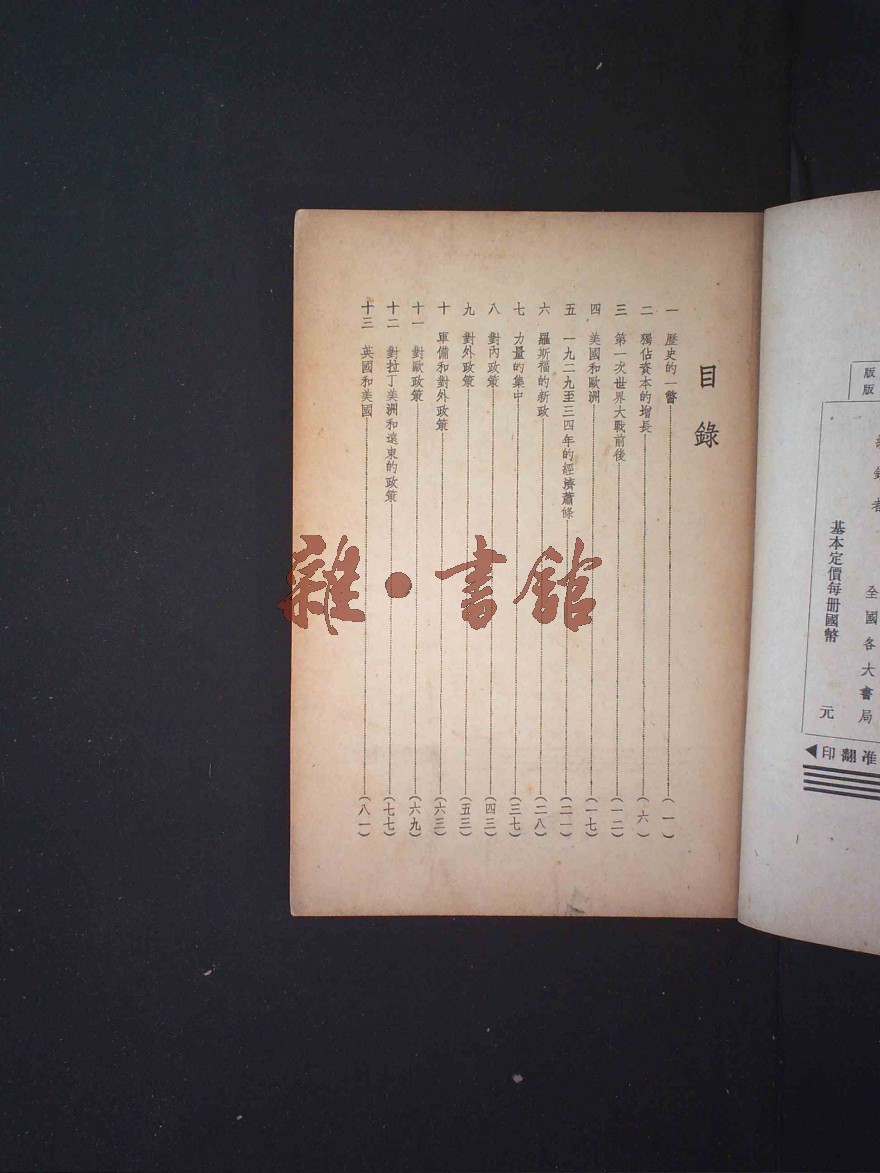 版
版
全國各大書局
基本定價每册國幣 元
印翻准
目錄
一 歷史的一瞥 (一)
二 獨佔資本的增長 (六)
三 第一次世界大戰前後 (一二)
四 美國和歐洲 (一七)
五 一九二九至三四年的經濟蕭條 (二一)
六 羅斯福的新政 (二八)
七 力量的集中 (三七)
八 對內政策 (四三)
九 對外政策 (五三)
十 軍備和對外政策 (六三)
十一 對歐政策 (六九)
十二 對拉丁美洲和遠東的政策 (七七)
十三 英國和美國 (八一)
雜·書館